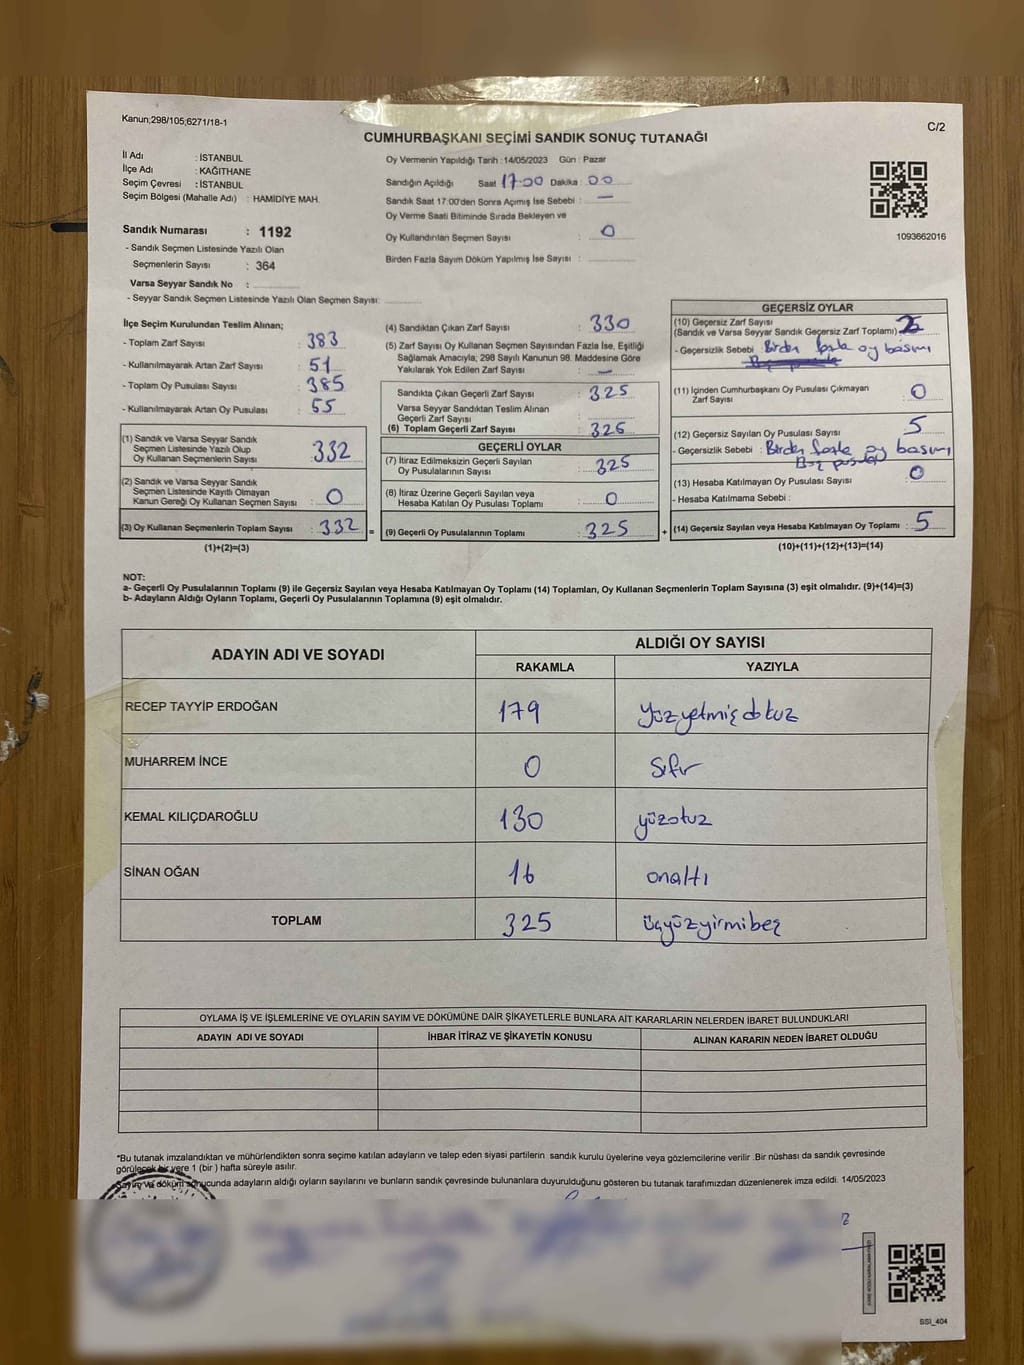 Kanun;298/105;6271/18-1
C/2
CUMHURBAŞKANI SEÇİMİ SANDIK SONUÇ TUTANAĞI
İl Adı : İSTANBUL
İlçe Adı : KAĞITHANE
Seçim Çevresi : İSTANBUL
Seçim Bölgesi (Mahalle Adı) : HAMİDİYE MAH.
Sandık Numarası : 1192
- Sandık Seçmen Listesinde Yazılı Olan
Seçmenlerin Sayısı : 364
Varsa Seyyar Sandık No :
- Seyyar Sandık Seçmen Listesinde Yazılı Olan Seçmen Sayısı:
Oy Vermenin Yapıldığı Tarih : 14/05/2023 Gün : Pazar
Sandığın Açıldığı Saat 17:00 Dakika : 00
Sandık Saat 17:00'den Sonra Açımış İse Sebebi : —
Oy Verme Saati Bitiminde Sırada Bekleyen ve
Oy Kullandırılan Seçmen Sayısı : 0
Birden Fazla Sayım Döküm Yapılmış İse Sayısı :
1093662016
İlçe Seçim Kurulundan Teslim Alınan;
- Toplam Zarf Sayısı : 383
- Kullanılmayarak Artan Zarf Sayısı : 51
- Toplam Oy Pusulası Sayısı : 385
- Kullanılmayarak Artan Oy Pusulası : 55
(1) Sandık ve Varsa Seyyar Sandık
Seçmen Listesinde Yazılı Olup
Oy Kullanan Seçmenlerin Sayısı : 332
(2) Sandık ve Varsa Seyyar Sandık
Seçmen Listesinde Kayıtlı Olmayan
Kanun Gereği Oy Kullanan Seçmen Sayısı : 0
(3) Oy Kullanan Seçmenlerin Toplam Sayısı : 332 =
(1)+(2)=(3)
(4) Sandıktan Çıkan Zarf Sayısı : 330
(5) Zarf Sayısı Oy Kullanan Seçmen Sayısından Fazla İse, Eşitliği
Sağlamak Amacıyla; 298 Sayılı Kanunun 98. Maddesine Göre
Yakılarak Yok Edilen Zarf Sayısı : —
Sandıkta Çıkan Geçerli Zarf Sayısı : 325
Varsa Seyyar Sandıktan Teslim Alınan
Geçerli Zarf Sayısı :
(6) Toplam Geçerli Zarf Sayısı : 325
GEÇERLİ OYLAR
(7) İtiraz Edilmeksizin Geçerli Sayılan
Oy Pusulalarının Sayısı : 325
(8) İtiraz Üzerine Geçerli Sayılan veya
Hesaba Katılan Oy Pusulası Toplamı : 0
(9) Geçerli Oy Pusulalarının Toplamı : 325 +
GEÇERSİZ OYLAR
(10) Geçersiz Zarf Sayısı
(Sandık ve Varsa Seyyar Sandık Geçersiz Zarf Toplamı) :
- Geçersizlik Sebebi : Birden fazla oy basımı
(11) İçinden Cumhurbaşkanı Oy Pusulası Çıkmayan
Zarf Sayısı : 0
(12) Geçersiz Sayılan Oy Pusulası Sayısı : 5
- Geçersizlik Sebebi : Birden fazla oy basımı
Boş pusula
(13) Hesaba Katılmayan Oy Pusulası Sayısı : 0
- Hesaba Katılmama Sebebi :
(14) Geçersiz Sayılan veya Hesaba Katılmayan Oy Toplamı : 5
(10)+(11)+(12)+(13)=(14)
NOT:
a- Geçerli Oy Pusulalarının Toplamı (9) ile Geçersiz Sayılan veya Hesaba Katılmayan Oy Toplamı (14) Toplamları, Oy Kullanan Seçmenlerin Toplam Sayısına (3) eşit olmalıdır. (9)+(14)=(3)
b- Adayların Aldığı Oyların Toplamı, Geçerli Oy Pusulalarının Toplamına (9) eşit olmalıdır.
ADAYIN ADI VE SOYADI ALDIĞI OY SAYISI
RAKAMLA YAZIYLA
RECEP TAYYİP ERDOĞAN 179 Yüzyetmişdokuz
MUHARREM İNCE 0 Sıfır
KEMAL KILIÇDAROĞLU 130 yüzotuz
SİNAN OĞAN 16 onaltı
TOPLAM 325 üçyüzyirmibeş
OYLAMA İŞ VE İŞLEMLERİNE VE OYLARIN SAYIM VE DÖKÜMÜNE DAİR ŞİKAYETLERLE BUNLARA AİT KARARLARIN NELERDEN İBARET BULUNDUKLARI
ADAYIN ADI VE SOYADI İHBAR İTİRAZ VE ŞİKAYETİN KONUSU ALINAN KARARIN NEDEN İBARET OLDUĞU
*Bu tutanak imzalandıktan ve mühürlendikten sonra seçime katılan adayların ve talep eden siyasi partilerin sandık kurulu üyelerine veya gözlemcilerine verilir .Bir nüshası da sandık çevresinde
görülecek bir yere 1 (bir ) hafta süreyle asılır.
Sayım ve döküm sonucunda adayların aldığı oyların sayılarını ve bunların sandık çevresinde bulunanlara duyurulduğunu gösteren bu tutanak tarafımızdan düzenlenerek imza edildi. 14/05/2023
SSI_404